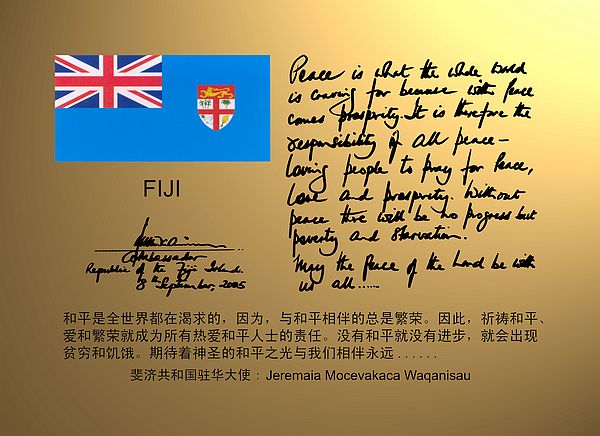 Peace is what the whole world
is craving for because with Peace
comes Prosperity. It is therefore the
responsibility of all peace-
loving people to pray for Peace,
love and prosperity. Without
peace there will be no progress but
poverty and starvation.
May the Peace of the Lord be with
us all.....
FIJI
Ambassador
Republic of the Fiji Islands.
September, 2005
和平是全世界都在渴求的，因为，与和平相伴的总是繁荣。因此，祈祷和平、
爱和繁荣就成为所有热爱和平人士的责任。没有和平就没有进步，就会出现
贫穷和饥饿。期待着神圣的和平之光与我们相伴永远 . . . . . .
斐济共和国驻华大使：Jeremaia Mocevakaca Waqanisau